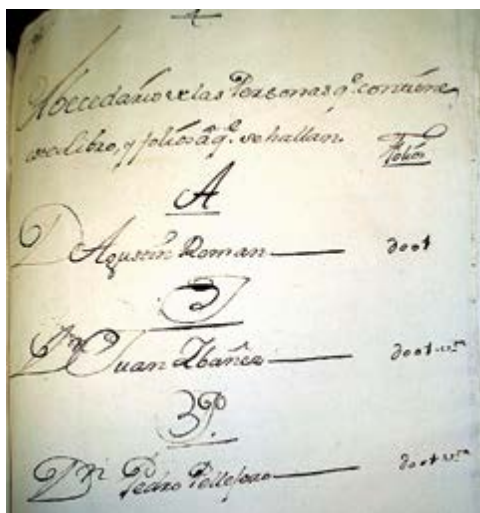 Abecedario de las Personas q.e contiene
este libro, y folios â q.e se hallan.
Folios
A
D Agustin Roman
J
Dn Juan Ibañez
P.
Dn Pedro Pellejero